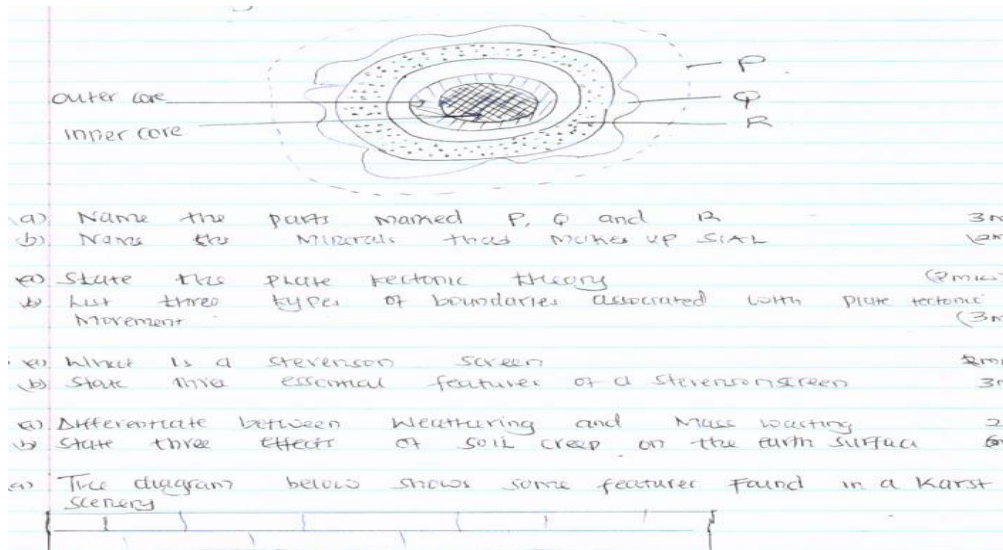 P
outer core
Q
R
inner core
(a) Name the parts marked P, Q and R 3m
(b) Name the Minerals that makes up SIAL (2m
(a) State the plate tectonic theory (2mks
(b) List three types of boundaries associated with plate tectonic
Movement (3m
(a) What is a stevenson screen 2m
(b) State three essential features of a stevenson screen 3m
(a) Differentiate between Weathering and Mass wasting 2
(b) State three Effects of soil creep on the Earth surface
(a) The diagram below shows some features found in a Karst
scenery